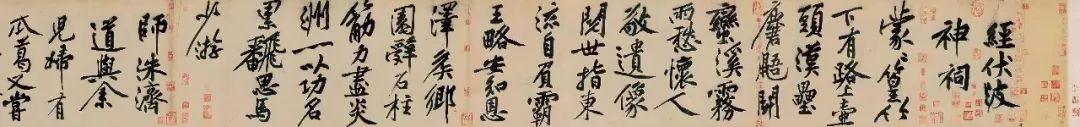 經伏波
神祠
蒙〻篁竹
下有路上壺
頭漢壘
麏鼯鬭
蠻溪霧
雨愁懷人
敬遺像
閱世指東
流自負霸
王略安知恩
澤侯鄉
園辭石柱
筋力盡炎
洲一以功名
累翻思馬
少游
師洙濟
道與余
兒婦有
瓜葛又嘗